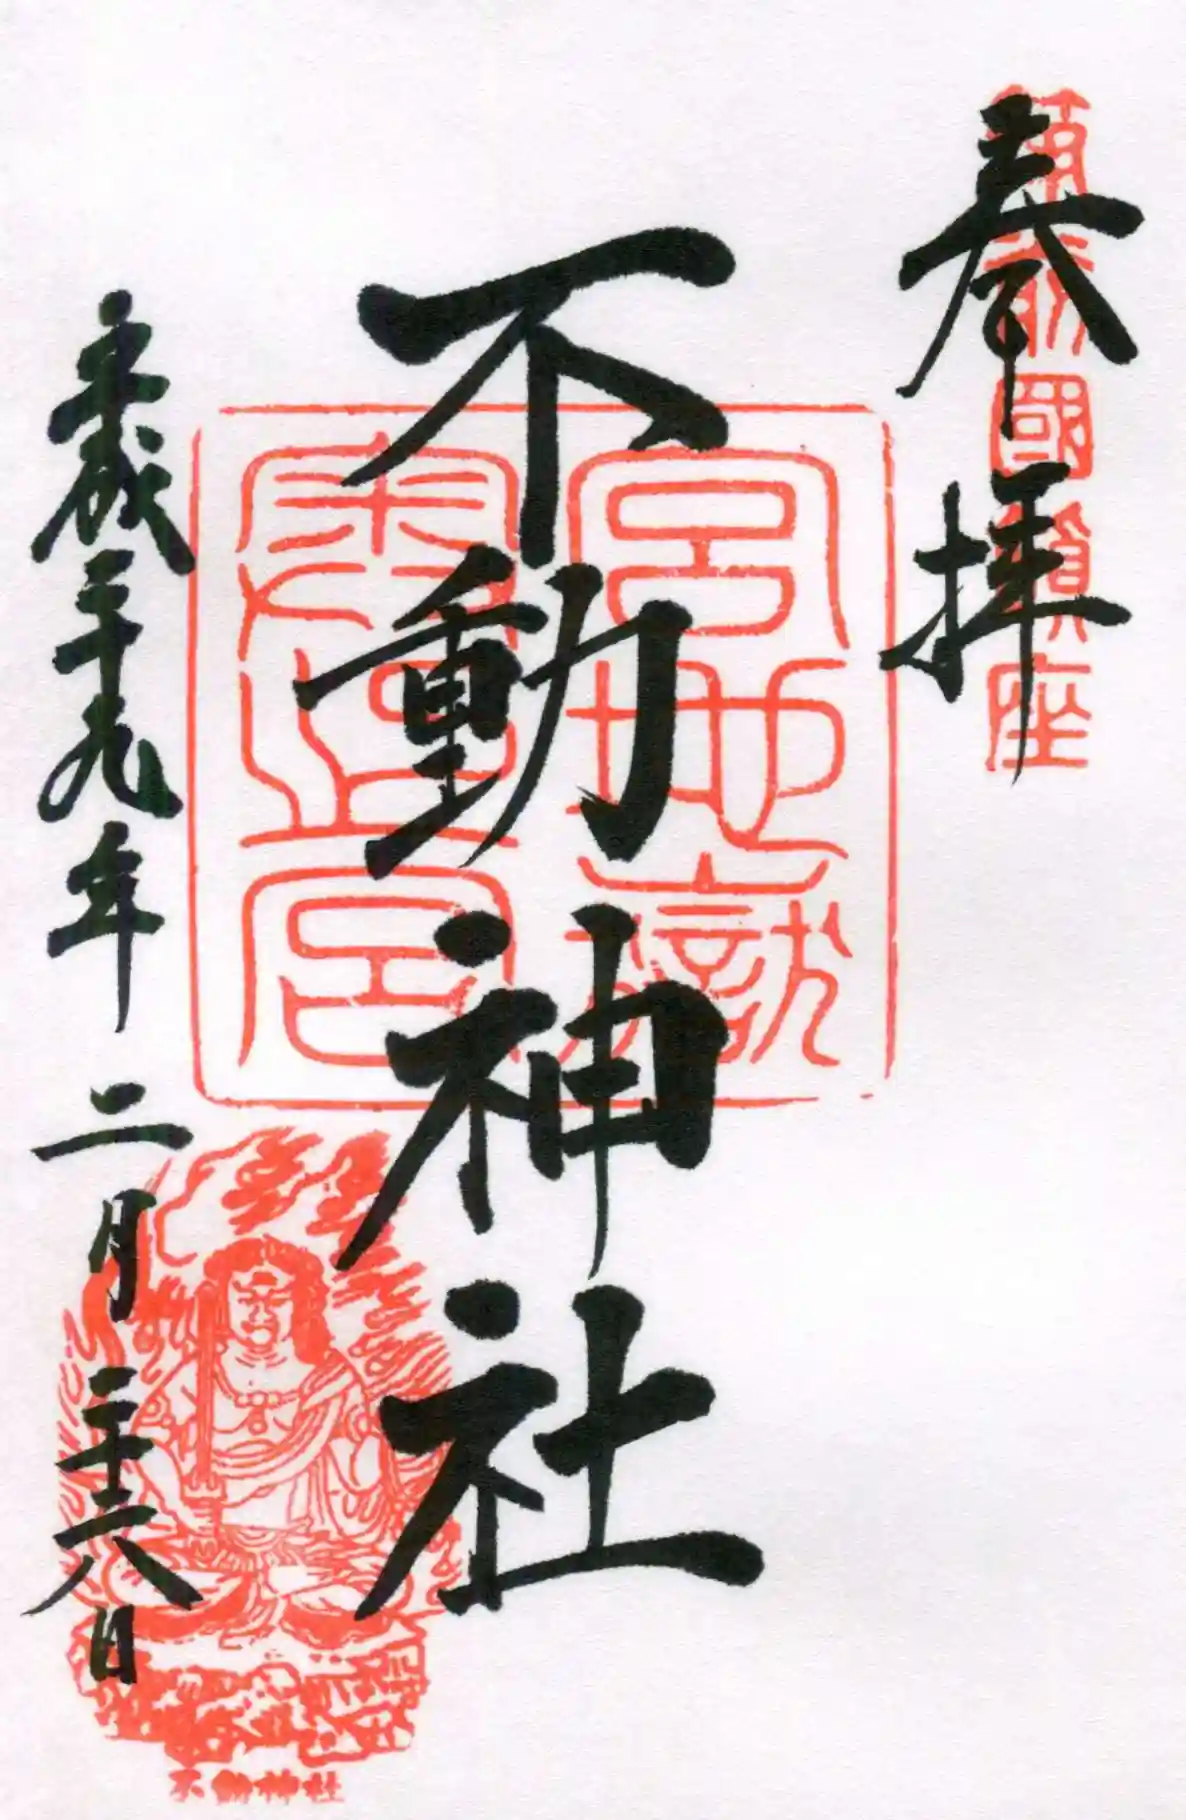 奉拝
筑前國鎮座
不動神社
宮地嶽
平成二十九年 二月 二十六日
不動神社